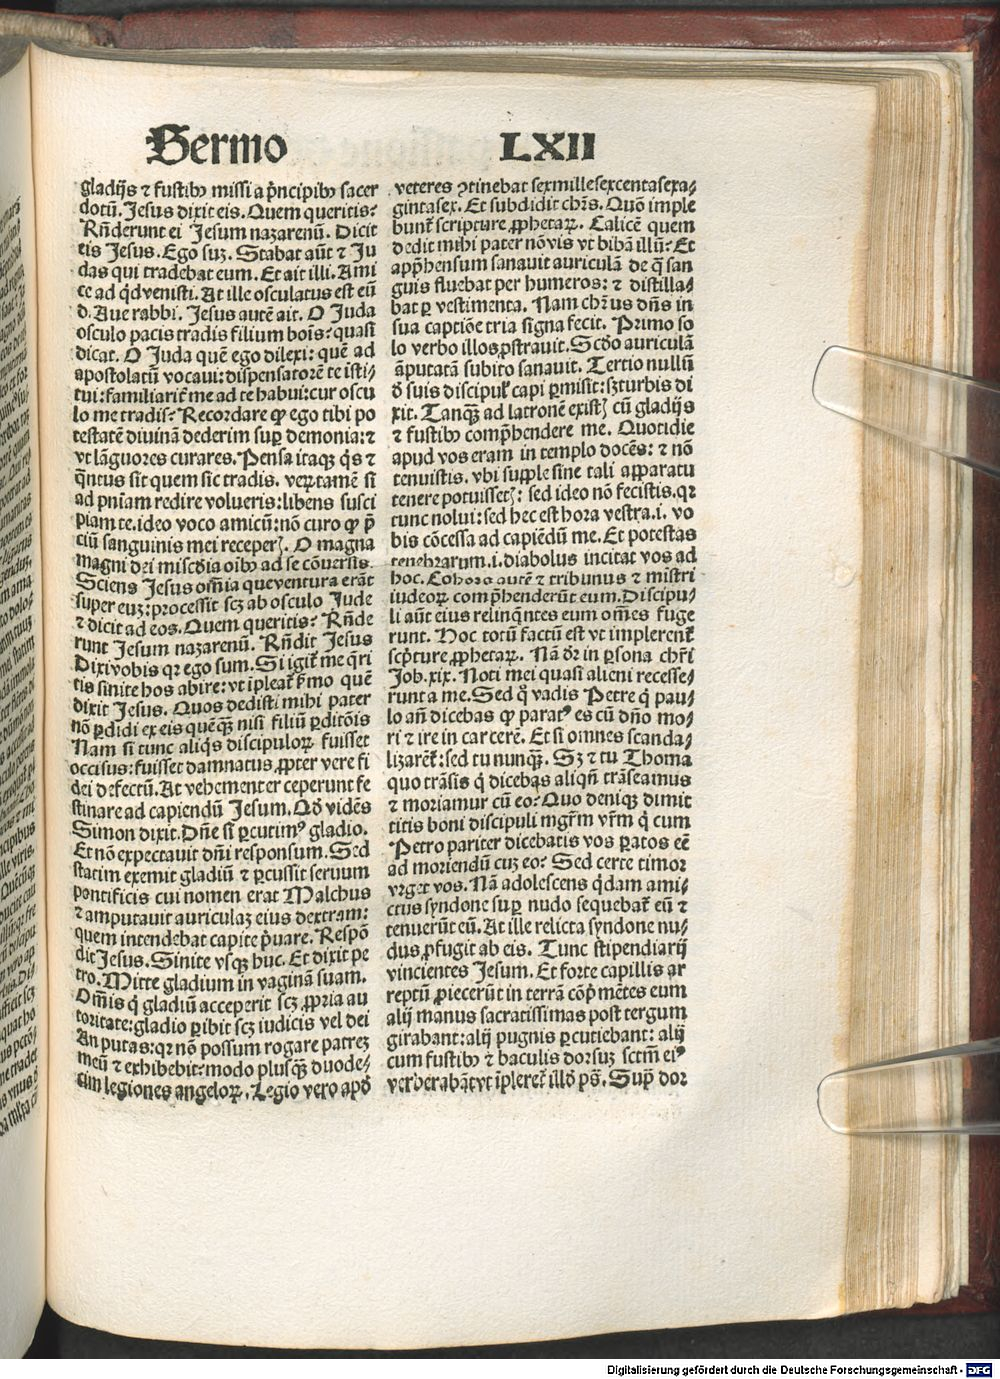 Sermo LXII
gladijs ⁊ fustibꝰ missi a p̄ncipibꝰ sacer
dotū. Jesus dixit eis. Quem queritis?
Rn̄derunt ei Jesum nazarenū. Dicit
eis Jesus. Ego suꝫ. Stabat aūt ⁊ Ju
das qui tradebat eum. Et ait illi. Ami
ce ad qd̄ venisti. At ille osculatus est eū
d. Aue rabbi. Jesus autē ait. O Juda
osculo pacis tradis filium hoīs? quasi
dicat. O Juda quē ego dilexi: quē ad
apostolatū vocaui: dispensatorē te isti⸗
tui: familiarit̄ me ad te habui: cur oscu
lo me tradis? Recordare ꝙ ego tibi po
testatē diuinā dederim suꝑ demonia: ⁊
vt lāguores curares. Pensa itaqꝫ q̇s ⁊
q̄ntus sit quem sic tradis. veꝝtamē si
ad pn̄iam redire volueris: libens susci
piam te. ideo voco amicū: nō curo ꝙ p̄
ciū sanguinis mei receperꝭ. O magna
magni dei misc̄dia oībꝰ ad se cōuersis.
Sciens Jesus om̄ia que ventura erāt
super euꝫ: processit scꝫ ab osculo Jude
⁊ dicit ad eos. Quem queritis? Rn̄de
runt Jesum nazarenū. Rn̄dit Jesus
Dixi vobis qꝛ ego sum. Si igit̄ me q̄ri
tis sinite hos abire: vt īpleat̄ ẜmo quē
dixit Jesus. Quos dedisti mihi pater
nō ꝑdidi ex eis quēqꝫ nisi filiū ꝑditōis
Nam si tunc aliq̇s discipuloꝝ fuisset
occisus: fuisset damnatus ꝓpter vere fi
dei defectū. At vehementer ceperunt fe
stinare ad capiendū Jesum. Qd̄ vidēs
Simon dixit. Dn̄e si ꝑcutimꝰ gladio.
Et nō expectauit dn̄i responsum. Sed
statim exemit gladiū ⁊ ꝑcussit seruum
pontificis cui nomen erat Malchus
⁊ amputauit auriculaꝫ eius dextram:
quem intendebat capite p̄uare. Respō
dit Jesus. Sinite vsqꝫ huc. Et dixit pe
tro. Mitte gladium in vaginā suam.
Om̄is q̇ gladiū acceperit scꝫ ꝓpria au
toritate: gladio ꝑibit scꝫ iudicis vel dei
An putas: qꝛ nō possum rogare patreꝫ
meū ⁊ exhibebit? modo plusqꝫ̄ duode⸗
cim legiones angeloꝝ. Legio vero apd̄
veteres ꝯtinebat sexmillesexcentasexa⸗
gintasex. Et subdidit chr̄s. Quō imple
bunt̄ scripture ꝓphetaꝝ. Calicē quem
dedit mihi pater nō vis vt bibā illū? Et
app̄hensum sanauit auriculā de q̄ san
guis fluebat per humeros: ⁊ distilla⸗
bat ꝑ vestimenta. Nam chr̄us dn̄s in
sua captiōe tria signa fecit. Primo so
lo verbo illos ꝓstrauit. Scd̄o auriculā
āputatā subito sanauit. Tertio nullū
d̄ suis discipulꝭ capi ꝑmisit: sꝫ turbis di
xit. Tanqꝫ̄ ad latronē existꝭ cū gladijs
⁊ fustibꝰ comp̄hendere me. Quotidie
apud vos eram in templo docēs: ⁊ nō
tenuistis. vbi supple sine tali apparatu
tenere potuissetꝭ: sed ideo nō fecistis. qꝛ
tunc nolui: sed hec est hora vestra .i. vo
bis cōcessa ad capiēdū me. Et potestas
tenebrarum .i. diabolus incitat vos ad
hoc. Cohors autē ⁊ tribunus ⁊ mistri
iudeoꝝ comp̄henderūt eum. Discipu⸗
li aūt eius relinq̄ntes eum om̄es fuge
runt. Hoc totū factū est vt implerent̄
scp̄ture ꝓphetaꝝ. Nā dr̄ in ꝑsona chr̄i
Job .xix. Noti mei quasi alieni recesse⸗
runt a me. Sed q̊ vadis Petre q̇ pau⸗
lo an̄ dicebas ꝙ paratꝰ es cū dn̄o mo⸗
ri ⁊ ire in carcerē. Et si omnes scanda⸗
lizarent̄: sed tu nunqꝫ̄. Sꝫ ⁊ tu Thoma
quo trāsis q̇ dicebas aliqn̄ trāseamus
⁊ moriamur cū eo? Quo deniqꝫ dimit
titis boni discipuli mgr̄m vr̄m q̇ cum
Petro pariter dicebatis vos ꝑatos eē
ad moriendū cuꝫ eo? Sed certe timor
vrget vos. Nā adolescens q̇dam ami⸗
ctus syndone suꝑ nudo sequebat̄ eū ⁊
tenuerūt eū. At ille relicta syndone nu⸗
dus ꝓfugit ab eis. Tunc stipendiarij
vincientes Jesum. Et forte capillis ar
reptū ꝓiecerūt in terrā cōp̄mētes eum
alij manus sacratissimas post tergum
girabant: alij pugnis ꝑcutiebant: alij
cum fustibꝰ ⁊ baculis dorsuꝫ sctm̄ eiꝰ
verberabāt vt īpleret̄ illd̄ ps̄. Supͣ dor
Digitalisierung gefördert durch die Deutsche Forschungsgemeinschaft - DFG